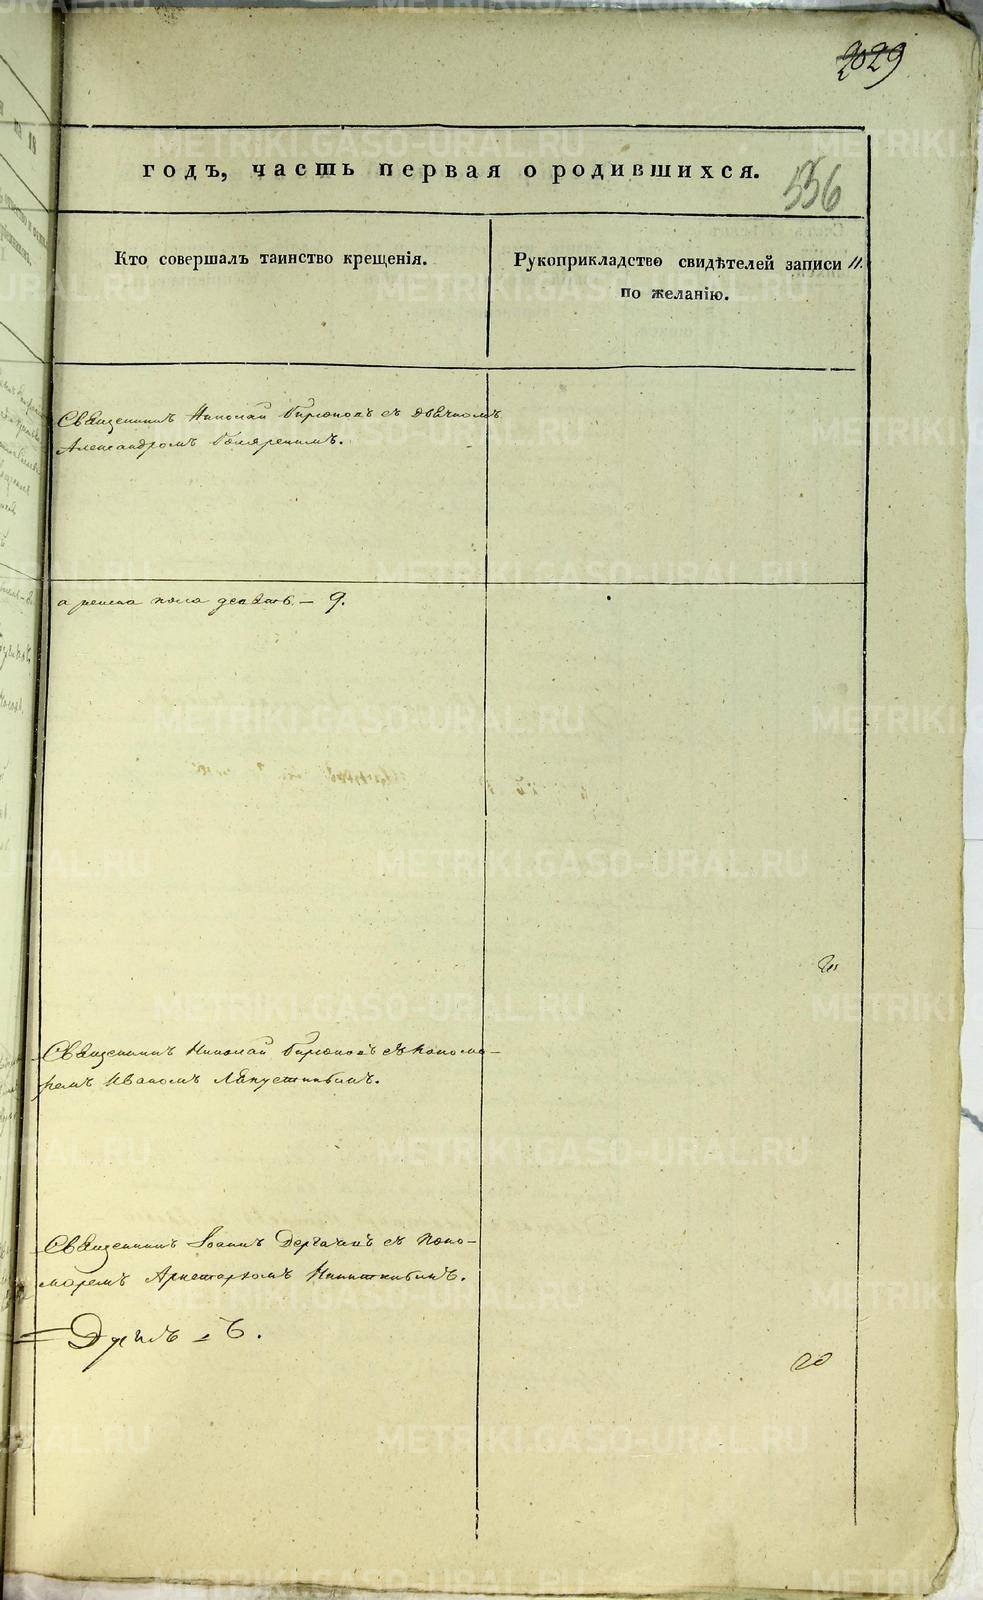 2029
годъ, часть первая о родившихся.
556
Кто совершалъ таинство крещенія.
Рукоприкладство свидѣтелей записи
по желанію.
11.
Священникъ Николай Бирюковъ съ дьячкомъ
Александромъ
а женска пола девять – 9.
Священникъ Николай Бирюковъ съ поно-
ремъ Иваномъ
Священникъ Іоаннъ Дергачевъ съ поно-
маремъ Аристархомъ
20
METRIKI.GASO-URAL.RU